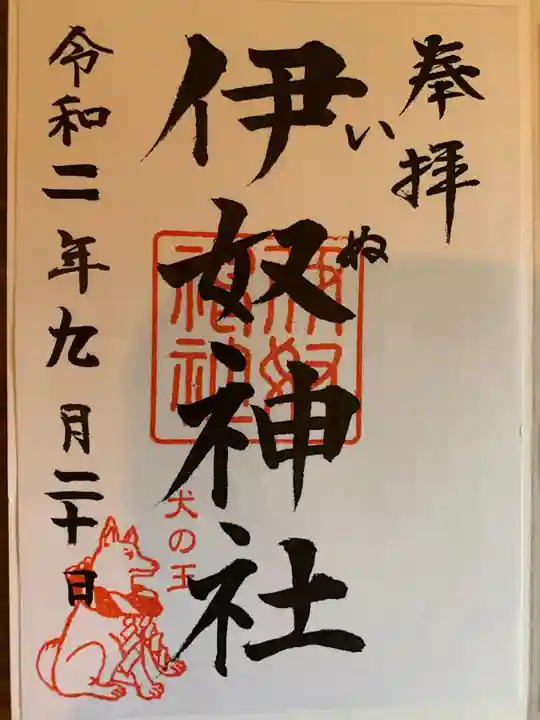 奉拝
伊奴神社
いぬ
犬の王
令和二年九月二十日